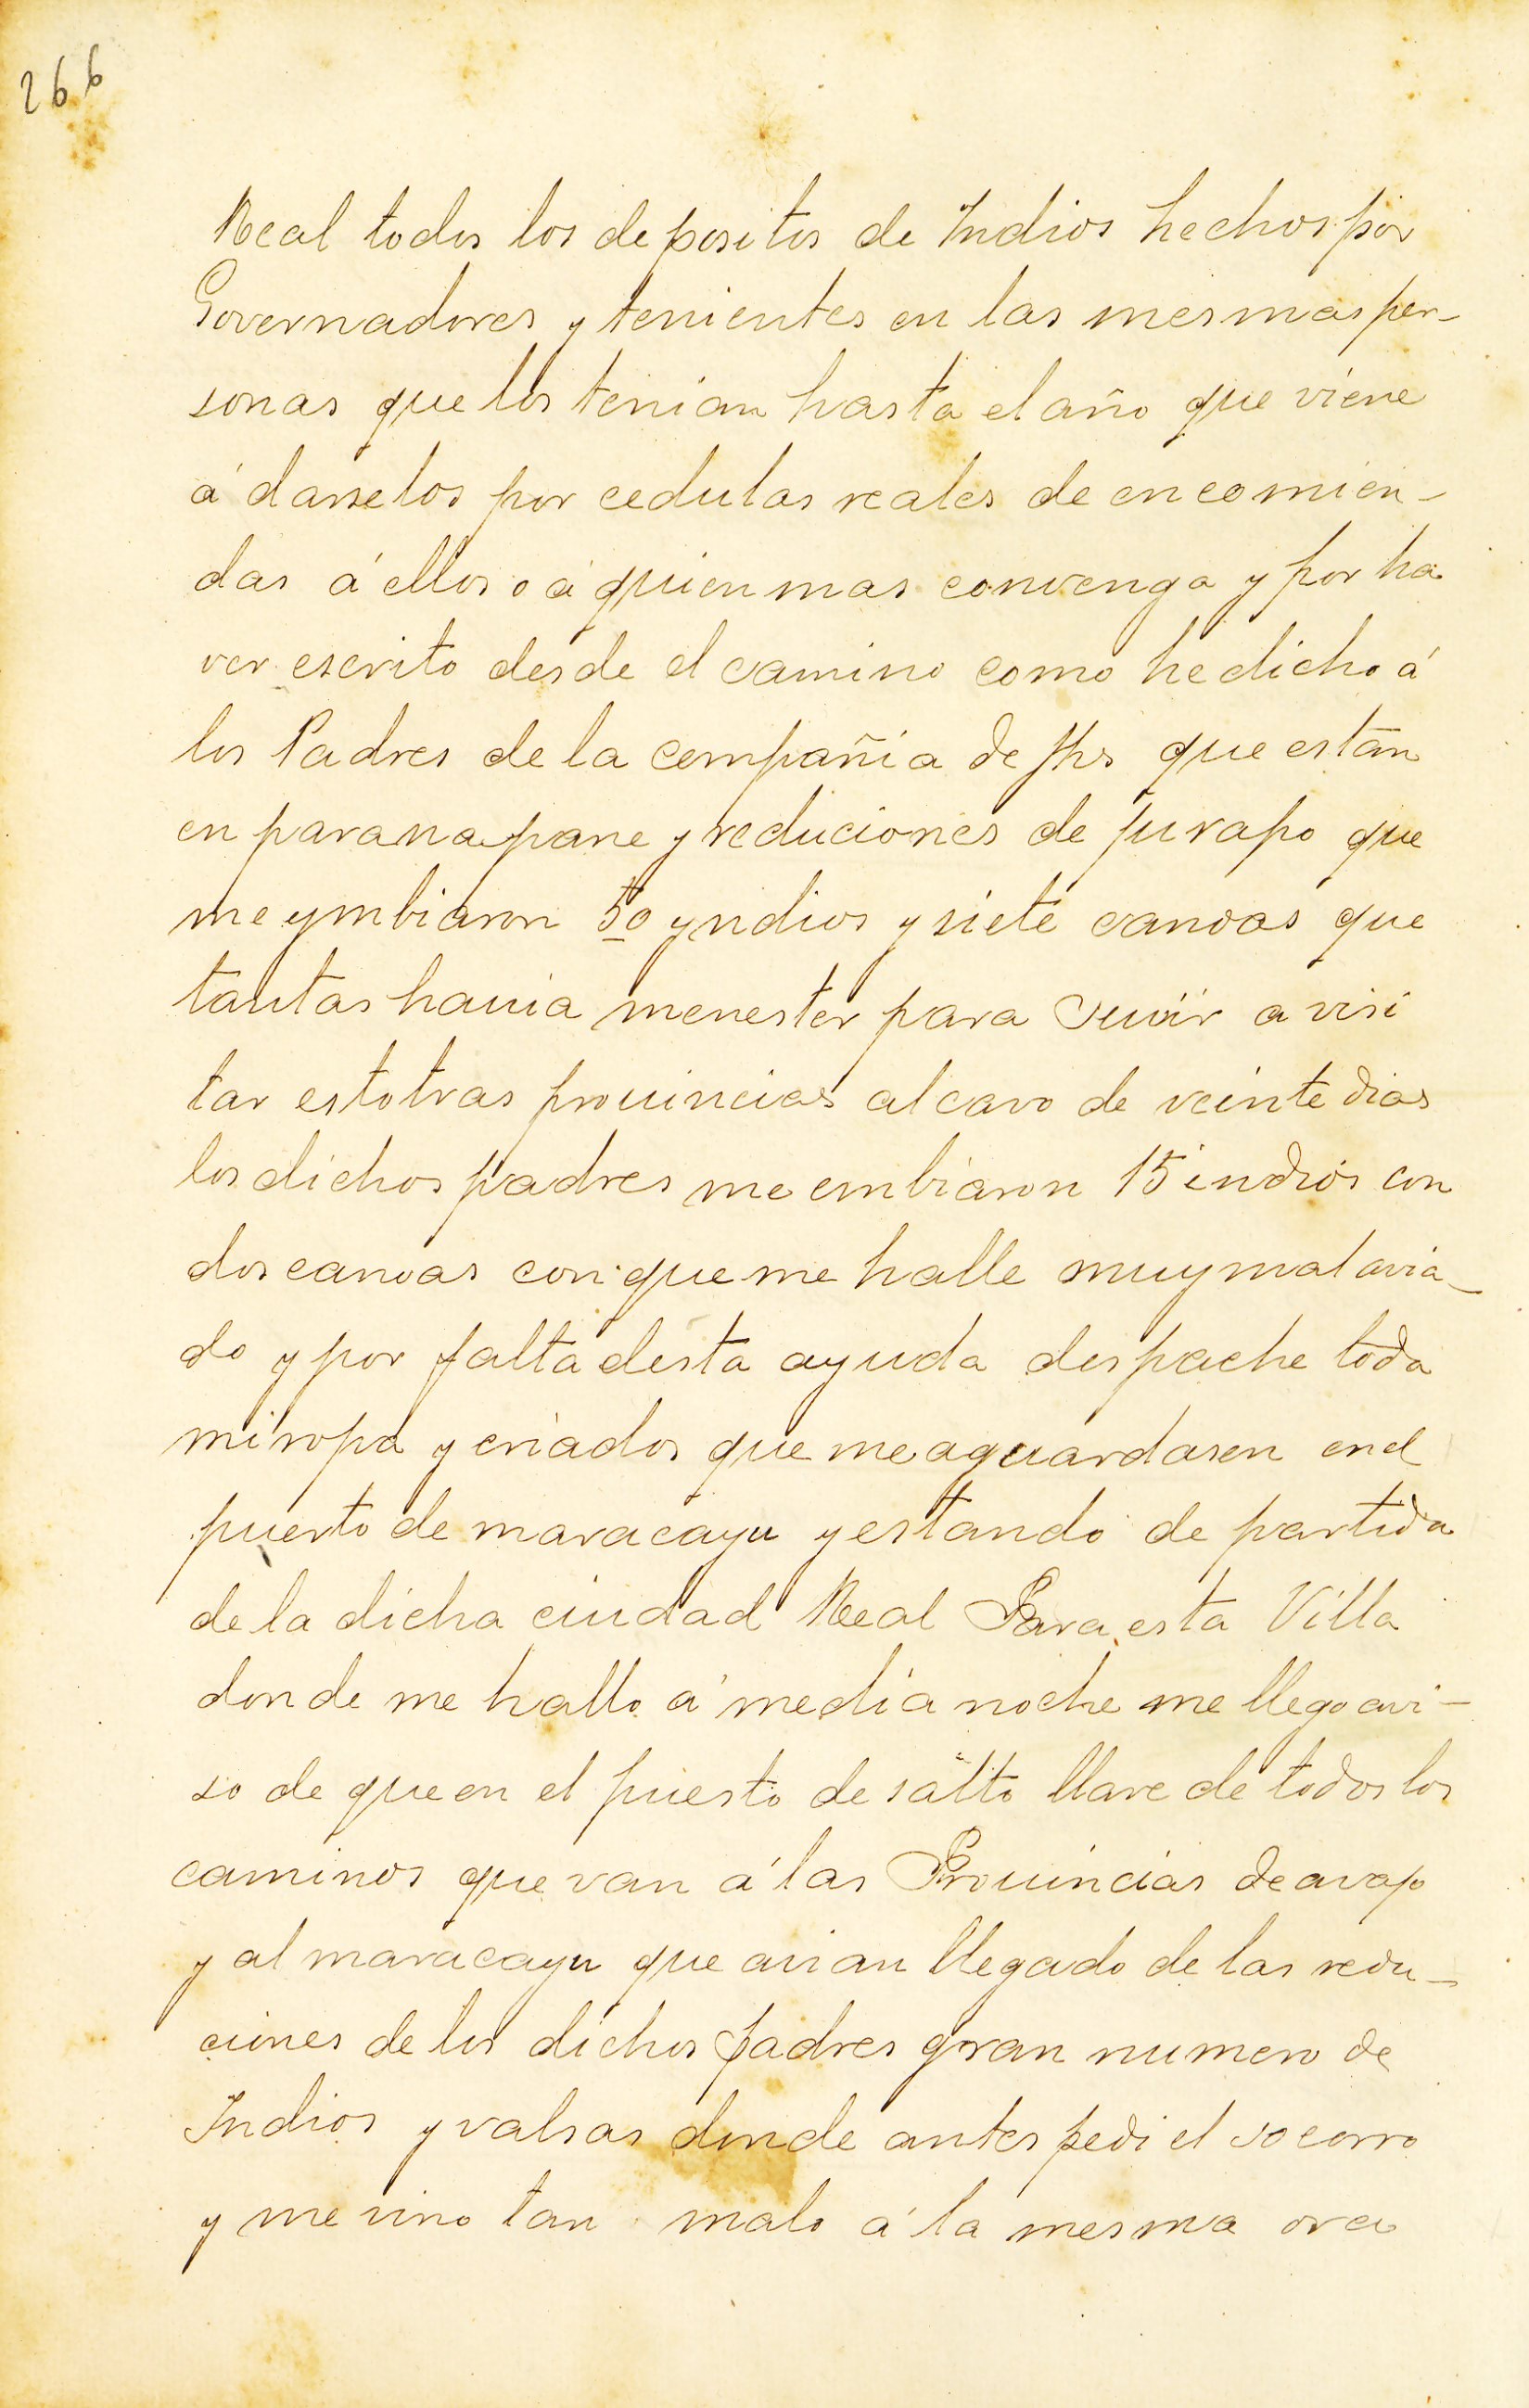 266
Real todos los depositos de Indios hechos por
Governadores y tenientes en las mesmas per-
sonas que los tenian hasta el año que viene
á darselos por cedulas reales de encomien-
das á ellos o á quien mas convenga y por ha
ver escrito desde el camino como he dicho á
los Padres de la compañia de Jhs que estan
en paranapane y reduciones de jurapo que
me ymbiaron 50 yndios y siete canoas que
tantas hauia menester para suvir a visi
tar estotras prouincias al cavo de veinte dias
los dichos padres me embiaron 15 indios con
dos canoas con que me halle muy mal avia-
do y por falta desta ayuda despache toda
mi ropa y criados que me aguardasen en el
puerto de maracayu y estando de partida
de la dicha ciudad Real Para esta Villa
donde me hallo á media noche me llego avi-
so de que en el puesto de salto llave de todos los
caminos que van á las Prouincias de avajo
y al maracayu que avian llegado de las redu-
ciones de los dichos padres gran numero de
Indios y valsas donde antes pedi el socorro
y me vino tan malo á la mesma ora